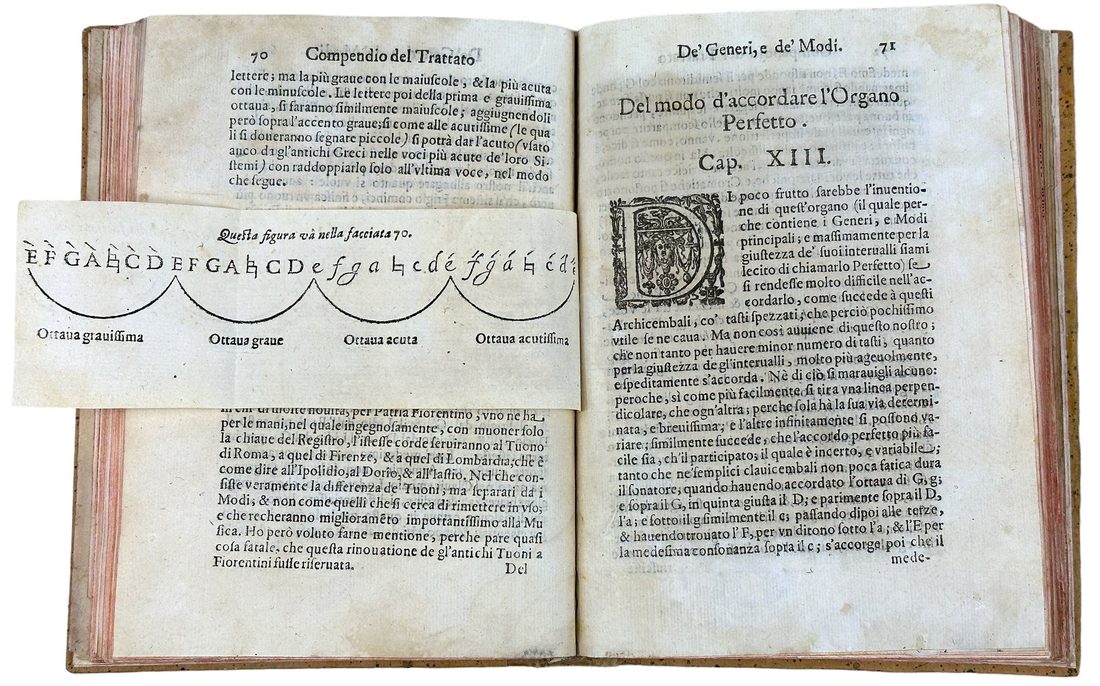 70 Compendio del Trattato
lettere; ma la più graue con le maiuscole, & la più acuta
con le minuscole. Le lettere poi della prima e grauissima
ottaua, si faranno similmente maiuscole; aggiugnendoli
però sopra l'accento graue; si come alle acutissime (le qua
li si doueranno segnare piccole) si potrà dar l'acuto (vsato
anco da gl'antichi Greci nelle voci più acute de' loro Si
stemi) con raddoppiarlo solo all'vltima voce, nel modo
che segue.
Questa figura và nella facciata 70.
È F̀ G̀ À ♮̀ C̀ D̀ E F G A ♮ C D e f g a ♮ c d é f́ ǵ á ♮́ ć d́
Ottaua grauissima Ottaua graue Ottaua acuta Ottaua acutissima
per Patria Fiorentino, vno ne ha
per le mani, nel quale ingegnosamente, con muouer solo
la chiaue del Registro, l'istesse corde seruiranno al Tuono
di Roma, a quel di Firenze, & a quel di Lombardia; che è
come dire all'Ipolidio, al Dorio, & all'Iastio. Nel che con-
siste veramente la differenza de' Tuoni; ma separati da i
Modi; & non come quelli che si cerca di rimettere in vso;
e che recheranno miglioramēto importantissimo alla Mu
sica. Ho però voluto farne mentione, perche pare quasi
cosa fatale, che questa rinouatione de gl'antichi Tuoni a
Fiorentini fusse riseruata.
Del
De' Generi, e de' Modi. 71
Del modo d'accordare l'Organo
Perfetto.
Cap. XIII.
DI poco frutto sarebbe l'inuentio-
ne di quest'organo (il quale per-
che contiene i Generi, e Modi
principali; e massimamente per la
giustezza de' suoi interualli siami
lecito di chiamarlo Perfetto) se
si rendesse molto difficile nell'ac-
cordarlo, come succede à questi
Archicembali, co' tasti spezzati; che perciò pochissimo
vtile se ne caua. Ma non così auuiene di questo nostro;
che non tanto per hauere minor numero di tasti, quanto
per la giustezza de gl'interualli, molto più ageuolmente,
e speditamente s'accorda. Nè di ciò si marauigli alcuno:
peroche, sì come più facilmente si tira vna linea perpen-
dicolare, che ogn'altra; perche sola hà la sua via determi-
nata, e breuissima; e l'altre infinitamente si possono va-
riare; similmente succede, che l'accordo perfetto più fa-
cile sia, ch'il participato, il quale è incerto, e variabile;
tanto che ne' semplici clauicembali non poca fatica dura
il sonatore, quando hauendo accordato l'ottaua di G, g;
e sopra il G, in quinta giusta il D; e parimente sopra il D,
l'a; e sotto il g similmente il c; passando dipoi alle terze,
& hauendo trouato l'F, per vn ditono sotto l'a; & l'E per
la medesima consonanza sopra il c; s'accorge poi che il
mede-